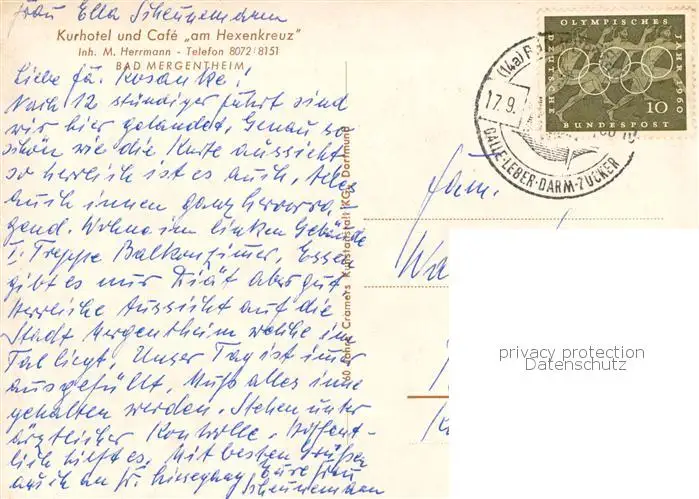 Frau Ella Scheunemann
Kurhotel und Café „am Hexenkreuz"
Inh. M. Herrmann - Telefon 8072/8151
BAD MERGENTHEIM
Liebe Fa. Kosanke!
Nach 12 stündiger Fahrt sind
wir hier gelandet. Genau so
schön wie die Karte aussieht
so herrlich ist es auch. Alles
auch innen ganz hervorra-
gend. Wohne im linken Gebäude
I. Treppe Balkonzimer. Essen
gibt es nur Diät aber gut
Herrliche Aussicht auf die
Stadt Mergentheim welche im
Tal liegt. Unser Tag ist imer
ausgefüllt. Muß alles inne
gehalten werden. Stehen unter
ärztlicher Kontrolle. Hoffent-
lich hilft es. Mit besten Grüßen
auch an Fr. Eure Frau
Scheunemann
60 Jahre Cramers Kunstanstalt KG, Dortmund
OLYMPISCHES
JAHR 1960
DEUTSCHE
BUNDESPOST
10
(14a)
17.9.
GALLE-LEBER-DARM-ZUCKER
Fam.
privacy protection
Datenschutz